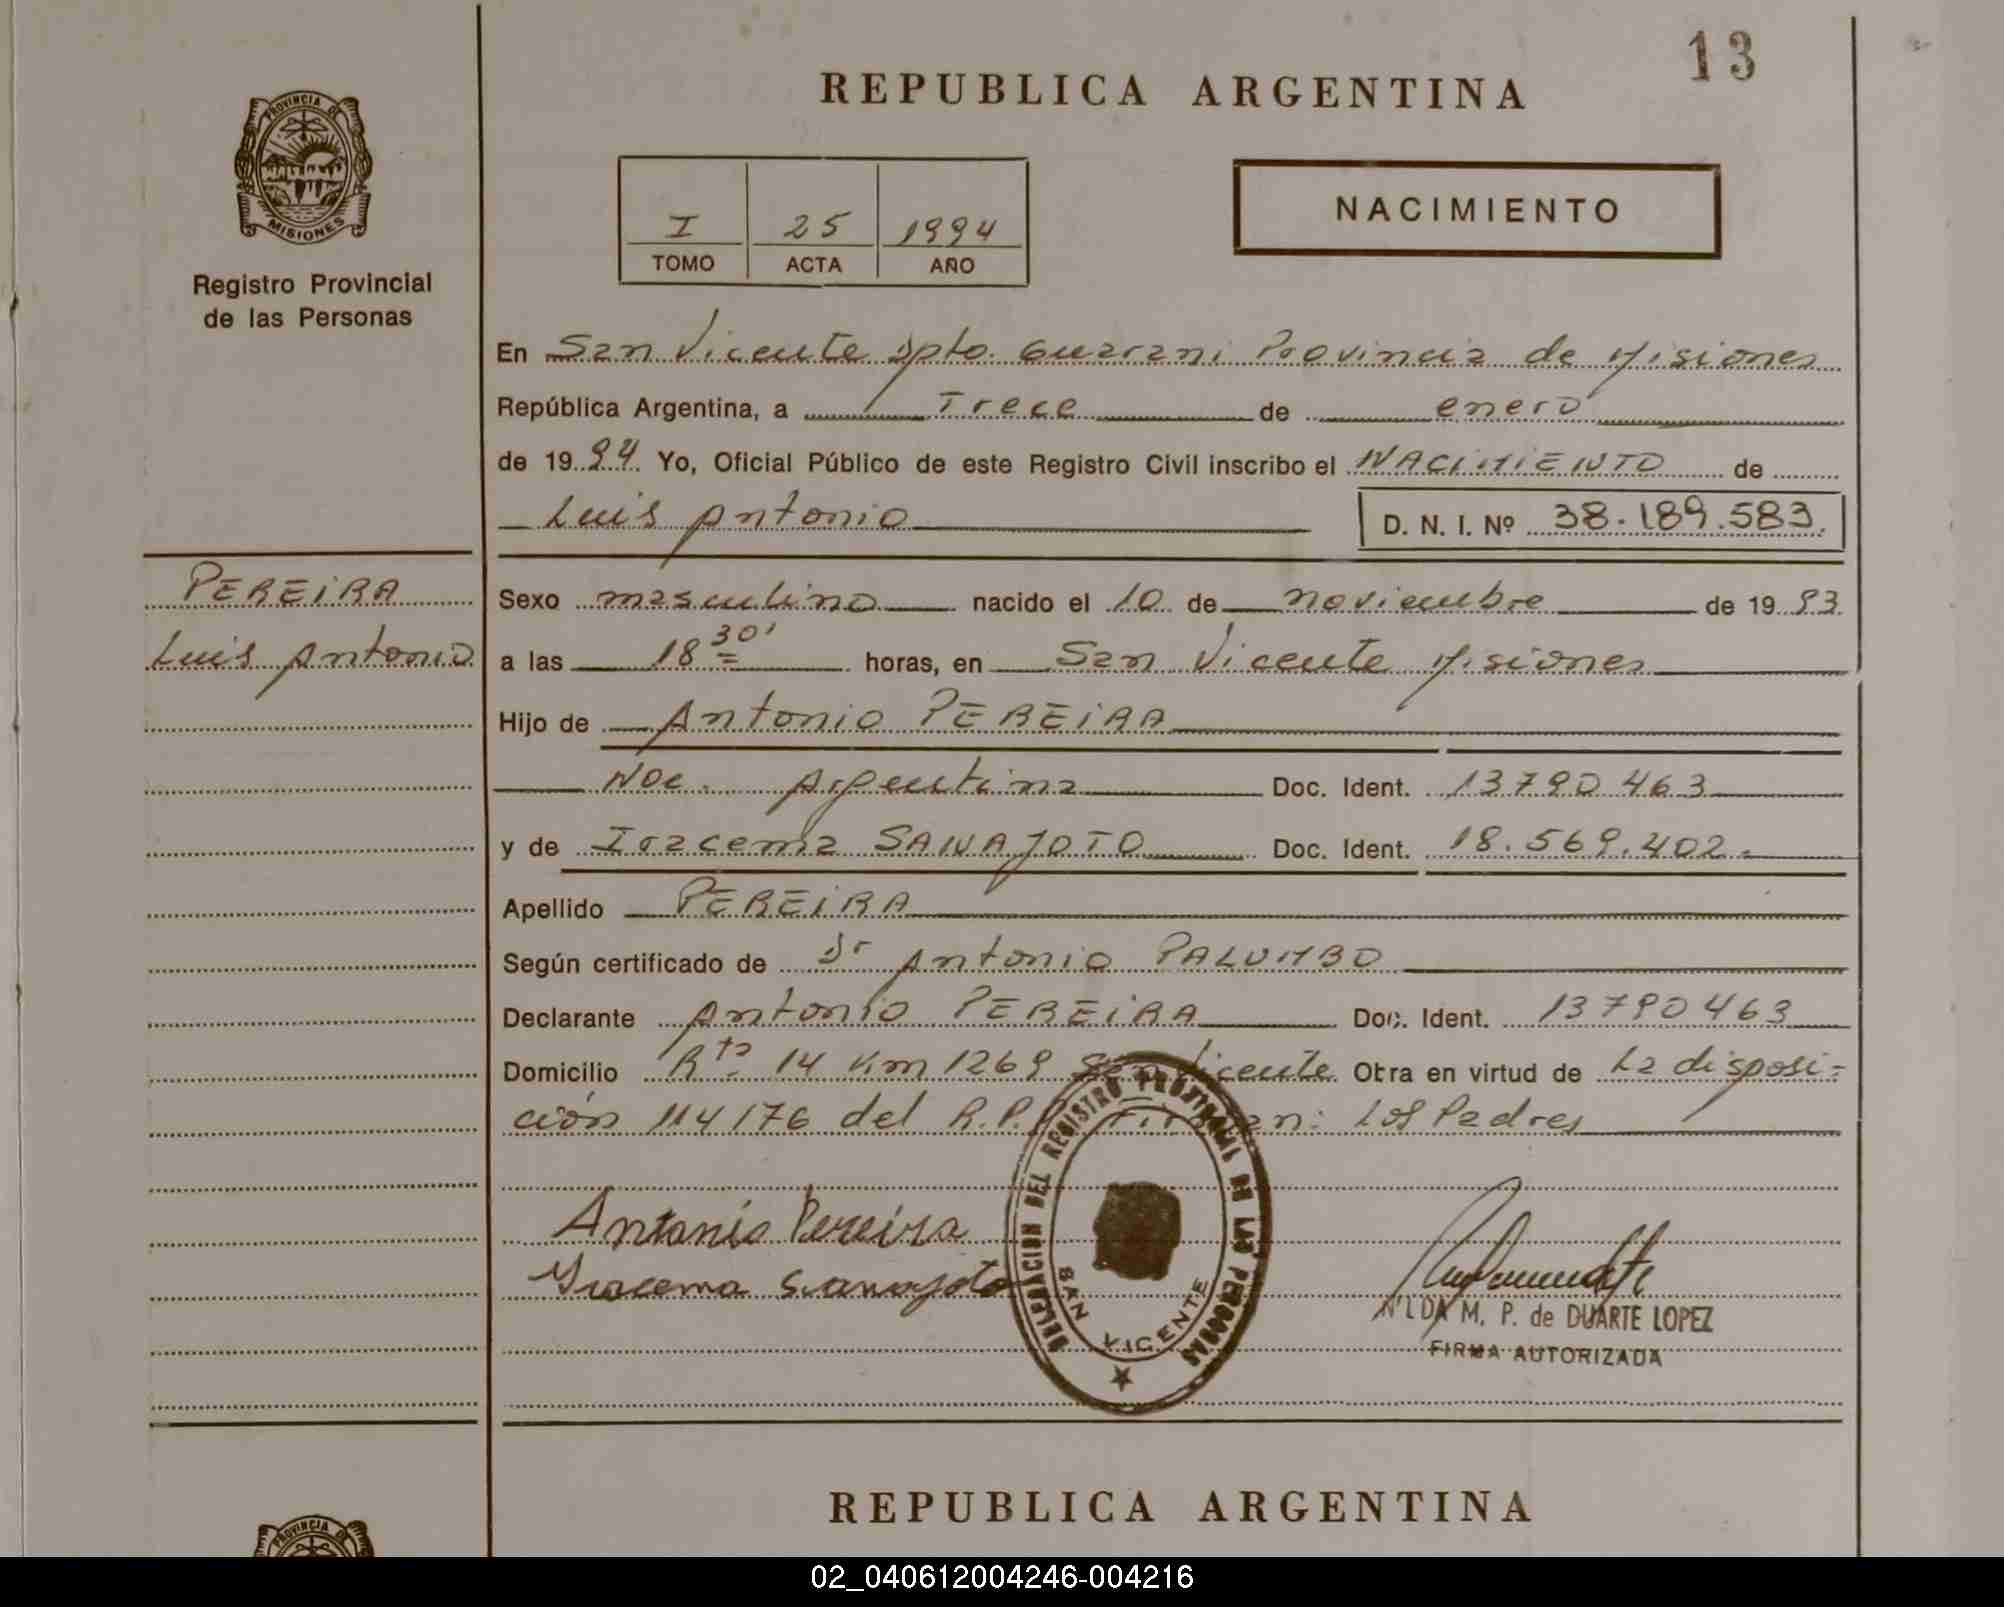 13
REPUBLICA ARGENTINA
PROVINCIA DE MISIONES
Registro Provincial
de las Personas
I 25 1994
TOMO ACTA AÑO
NACIMIENTO
En San Vicente Dpto. Guarani Provincia de Misiones
República Argentina, a Trece de enero
de 1994 Yo, Oficial Público de este Registro Civil inscribo el NACIMIENTO de
Luis Antonio D. N. I. Nº 38.189.583.
PEREIRA
Luis Antonio
Sexo masculino nacido el 10 de noviembre de 1993
a las 18 30' horas, en San Vicente Misiones
Hijo de Antonio PEREIRA
Nac. Argentina Doc. Ident. 13790463
y de Iracema SANAJOTO Doc. Ident. 18.569.402.
Apellido PEREIRA
Según certificado de Dr Antonio PALUMBO
Declarante Antonio PEREIRA Doc. Ident. 13790463
Domicilio Rta 14 Km 1269 San Vicente Otra en virtud de La disposi-
ción 114/76 del R.P. Firman: Los Padres
Antonio Pereira
Iracema Sanajoto
DELEGACION DEL REGISTRO PROVINCIAL DE LAS PERSONAS
SAN VICENTE
NILDA M. P. de DUARTE LOPEZ
FIRMA AUTORIZADA
REPUBLICA ARGENTINA
PROVINCIA DE
02_040612004246-004216